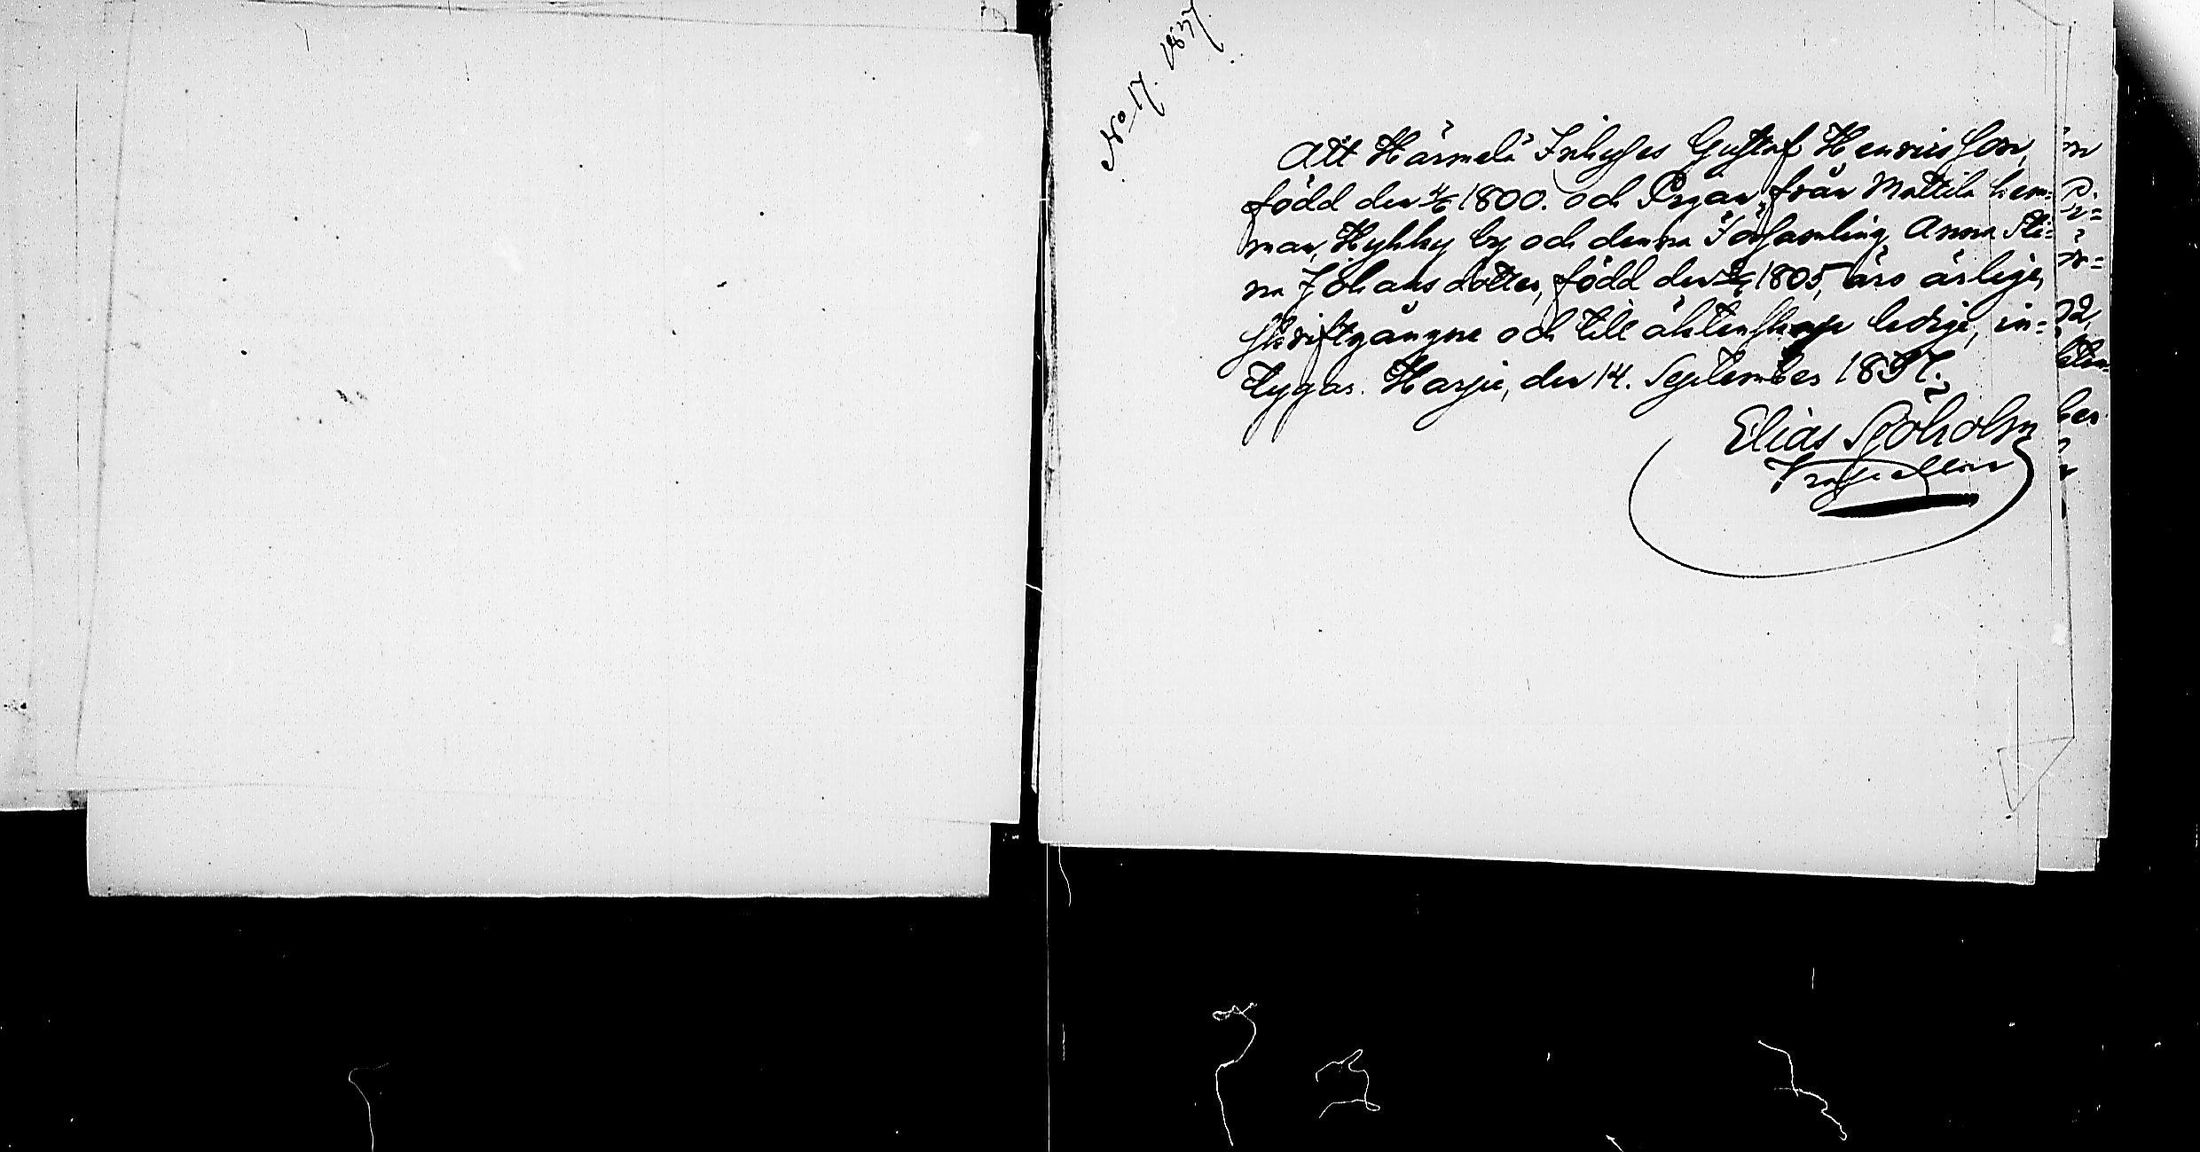 No 17. 1837.
Att Härmelä Inhyses Gustaf Henricsson,
född den 4/6 1800. och Pigan från Mattila hem=
man, Kyhky by och denna Församling Anna Sti=
na Johansdotter, född den 1805, äro ärlige,
skriftgångne och till äktenskap ledige, in=
tygas. Harju, den 14. September 1837.
Elias Sjöholm